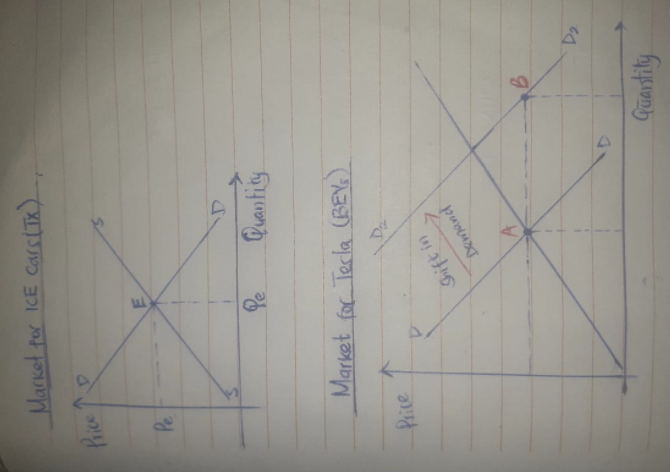 Market for ICE Cars (TX).
Price
D
S
E
Pe
S
D
Qe
Quantity
Market for Tesla (BEVs)
Price
D2
D2
D
Shift in
Demand
A
B
D
Quantity